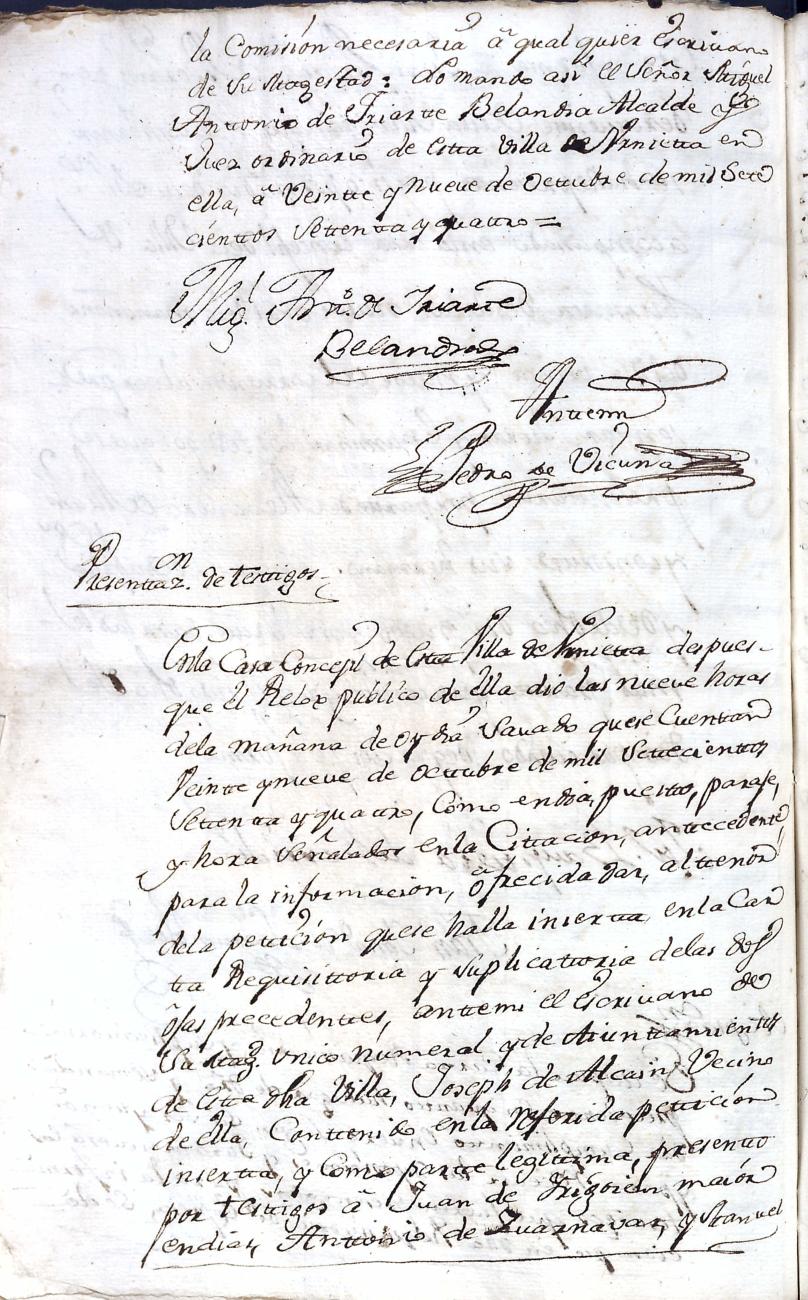 la Comisión necesaria â qual quier Escrivano
de Su Magestad: lo mando asi el Señor Miguel
Antonio de Yriarte Belandia Alcalde y
Juez ordinario de esta Villa de Vrnieta en
ella, â Veinte y Nueve de Octubre de mil Sete
cientos Settenta y quattro =
Mig.l Ant.o de Iriarte
Belandia
Antemi
Pedro de Vicuña
Presenttaz.on de testigos
En la Casa Concegil de esta Villa de Vrnieta despues
que el Relox publico de ella dio las nueve horas
dela mañana de oy dia Savado quese Cuentan
Veinte y nueve de octtubre de mil Settecientos
Settenta y quattro, como en dia, puesto, paraje,
y hora Señalados en la Cittacion, anttecedente,
para la informacion, ôfrecida dar, al tenor
dela petticion quese halla insertta, en la Car
tta Requisittoria y Suplicattoria delas dos
ôjas precedenttes, antte mi el Escrivano de
Su Mag. Vnico numeral y de Aiunttamientos
de esta dha Villa, Joseph de Alcain Vecino
de ella, Conttenido en la referida petticion
insertta, y Como partte legittima, presentto
por testtigos â Juan de Yrigoien maior
en dias, Anttonio de Zuarnavar, y Manuel